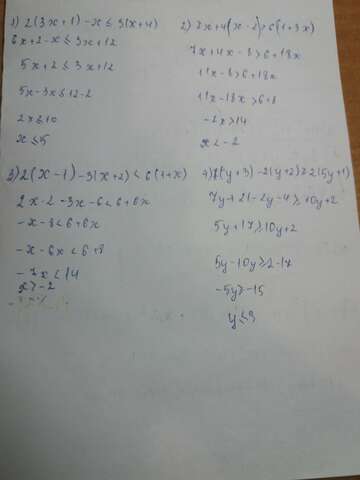 1) 2(3x+1)-x≤3(x+4)
6x+2-x≤3x+12
5x+2≤3x+12
5x-3x≤12-2
2x≤10
x≤5
2) 7x+4(x-2)>6(1+3x)
7x+4x-8>6+18x
11x-8>6+18x
11x-18x>6+8
-7x>14
x<-2
3) 2(x-1)-3(x+2)<6(1+x)
2x-2-3x-6<6+6x
-x-8<6+6x
-x-6x<6+8
-7x<14
x>-2
4) 7(y+3)-2(y+2)≥2(5y+1)
7y+21-2y-4≥10y+2
5y+17≥10y+2
5y-10y≥2-17
-5y≥-15
y≤3